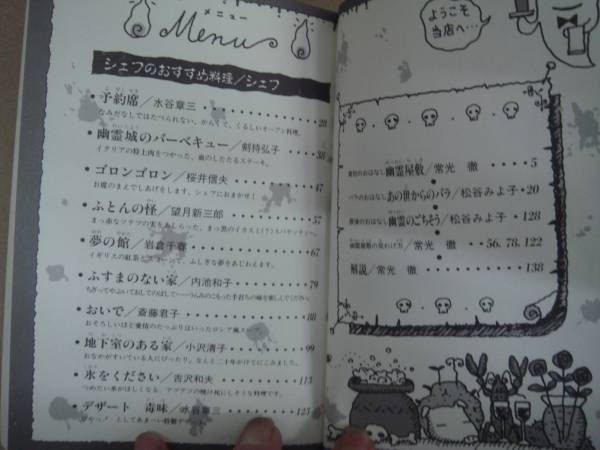 メニュー
Menu
シェフのおすすめ料理／シェフ
・予約席／水谷章三・・・・・・・・・28
なみだなしではたべられない、からくて、くるしいオープン料理。
・幽霊城のバーベキュー／剣持弘子・・38
イタリアの特上肉をつかった、血のしたたるステーキ。
・ゴロンゴロン／桜井信夫・・・・・・47
お席のまえでしあげをします。シェフにおまかせ！
・ふとんの怪／望月新三郎・・・・・・57
・夢の館／岩倉千春・・・・・・・・・67
・ふすまのない家／内池和子・・・・・79
・おいで／斎藤君子・・・・・・・・・88
・地下室のある家／小沢清子・・・・・99
おなかがすいている人にぴったり。なんと二十年かけてにこみました。
・氷をください／吉沢和夫・・・・・・113
・デザート 毒味／水谷章三・・・・・125
ようこそ
当店へ…
幽霊屋敷／常光 徹・・・・・・5
あの世からのバラ／松谷みよ子・20
幽霊のごちそう／松谷みよ子・128
常光 徹・・・56.78.122
解説／常光 徹・・・・・・・・138